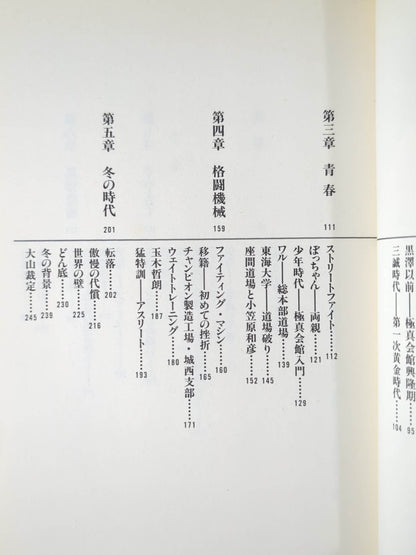 黒澤以前――極真会館興隆期……95
三誠時代――第一次黄金時代……104
第三章 青春 111
ストリートファイト……112
ぼっちゃん――両親……121
少年時代――極真会館入門……129
ワル――総本部道場……139
東海大学――道場破り……145
座間道場と小笠原和彦……152
第四章 格闘機械 159
ファイティング・マシン……160
移籍――初めての挫折……165
チャンピオン製造工場・城西支部……171
ウェイトトレーニング……180
玉木哲朗……187
猛特訓――アスリート……193
第五章 冬の時代 201
転落……202
傲慢の代償……216
世界の壁……225
どん底……230
冬の背景……239
大山裁定……245